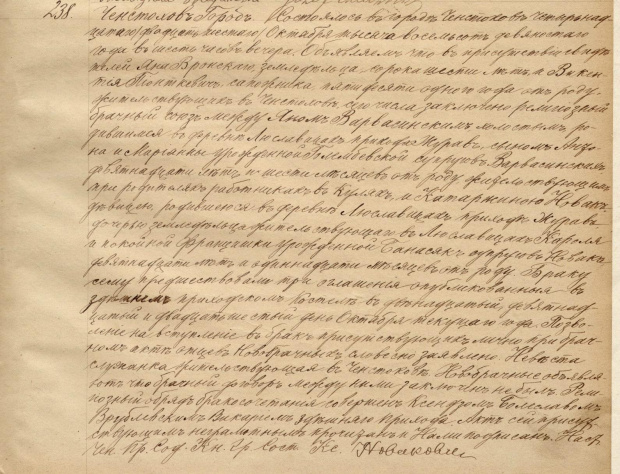 238.
Ченстохов Город. Состоялось въ городѣ Ченстоховѣ четырнад-
цатаго /двадцать шестаго/ Октября тысяча восемьсотъ девяностаго
года въ шесть часовъ вечера. Объявляемъ что въ присутствіи свидѣ-
телей Яна Вронскаго земледѣльца, сорока шести лѣтъ, и Викен-
тія Піонткевича сапожника, пятидесяти одного года отъ роду
жительствующихъ въ Ченстоховѣ, сего числа заключено религіозный
брачный союзъ между Яномъ Варвасинскимъ холостымъ, ро-
дившимся въ деревнѣ прихода Журав, сыномъ
и Маріанны урожденной супруговъ Варвасинскихъ
девятнадцати лѣтъ и шести мѣсяцевъ отъ роду жительствующимъ
при родителяхъ работникахъ въ и Катаржиною Новакъ
дѣвицею, родившеюся въ деревнѣ прихода Журав
дочерью земледѣльца жительствующаго въ Кароля
и покойной Францишки урожденной Банасякъ супруговъ Новакъ,
девятнадцати лѣтъ и одиннадцати мѣсяцевъ отъ роду. Браку
сему предшествовали три оглашенія опубликованныя въ
здѣшнемъ приходскомъ костелѣ въ двѣнадцатый, девятнад-
цатый и двадцать шестый день Октября текущаго года. Позво-
леніе на вступленіе въ бракъ присутствующихъ лично при брач-
номъ актѣ отцевъ Новобрачныхъ словесно заявлено. Невѣста
служанка жительствующая въ Ченстоховѣ. Новобрачные объявля-
ютъ что брачный договоръ между ними заключенъ не былъ. Рели-
гіозный обрядъ бракосочетанія совершенъ Ксендзомъ Болеславомъ
Врублевскимъ Викаріемъ здѣшняго прихода. Актъ сей присут-
ствующимъ неграмотнымъ прочитанъ и Нами подписанъ. Наст.
Чен. Пр. Сод. Кн. Гр. Сост. Кс.